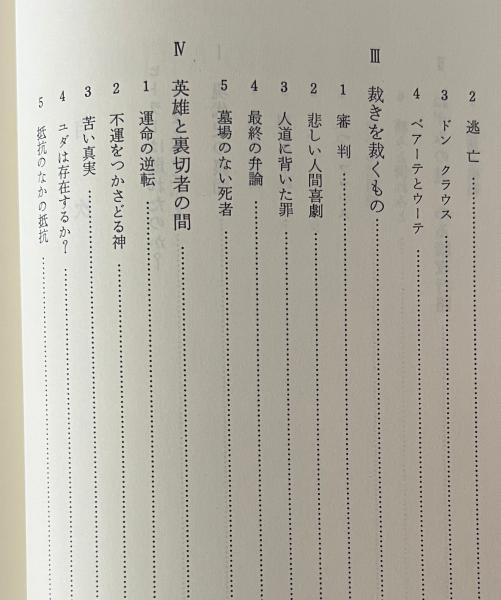 2 逃亡
3 ドン クラウス
4 ベアーテとウーテ
Ⅲ 裁きを裁くもの
1 審判
2 悲しい人間喜劇
3 人道に背いた罪
4 最終の弁論
5 墓場のない死者
Ⅳ 英雄と裏切者の間
1 運命の逆転
2 不運をつかさどる神
3 苦い真実
4 ユダは存在するか?
5 抵抗のなかの抵抗